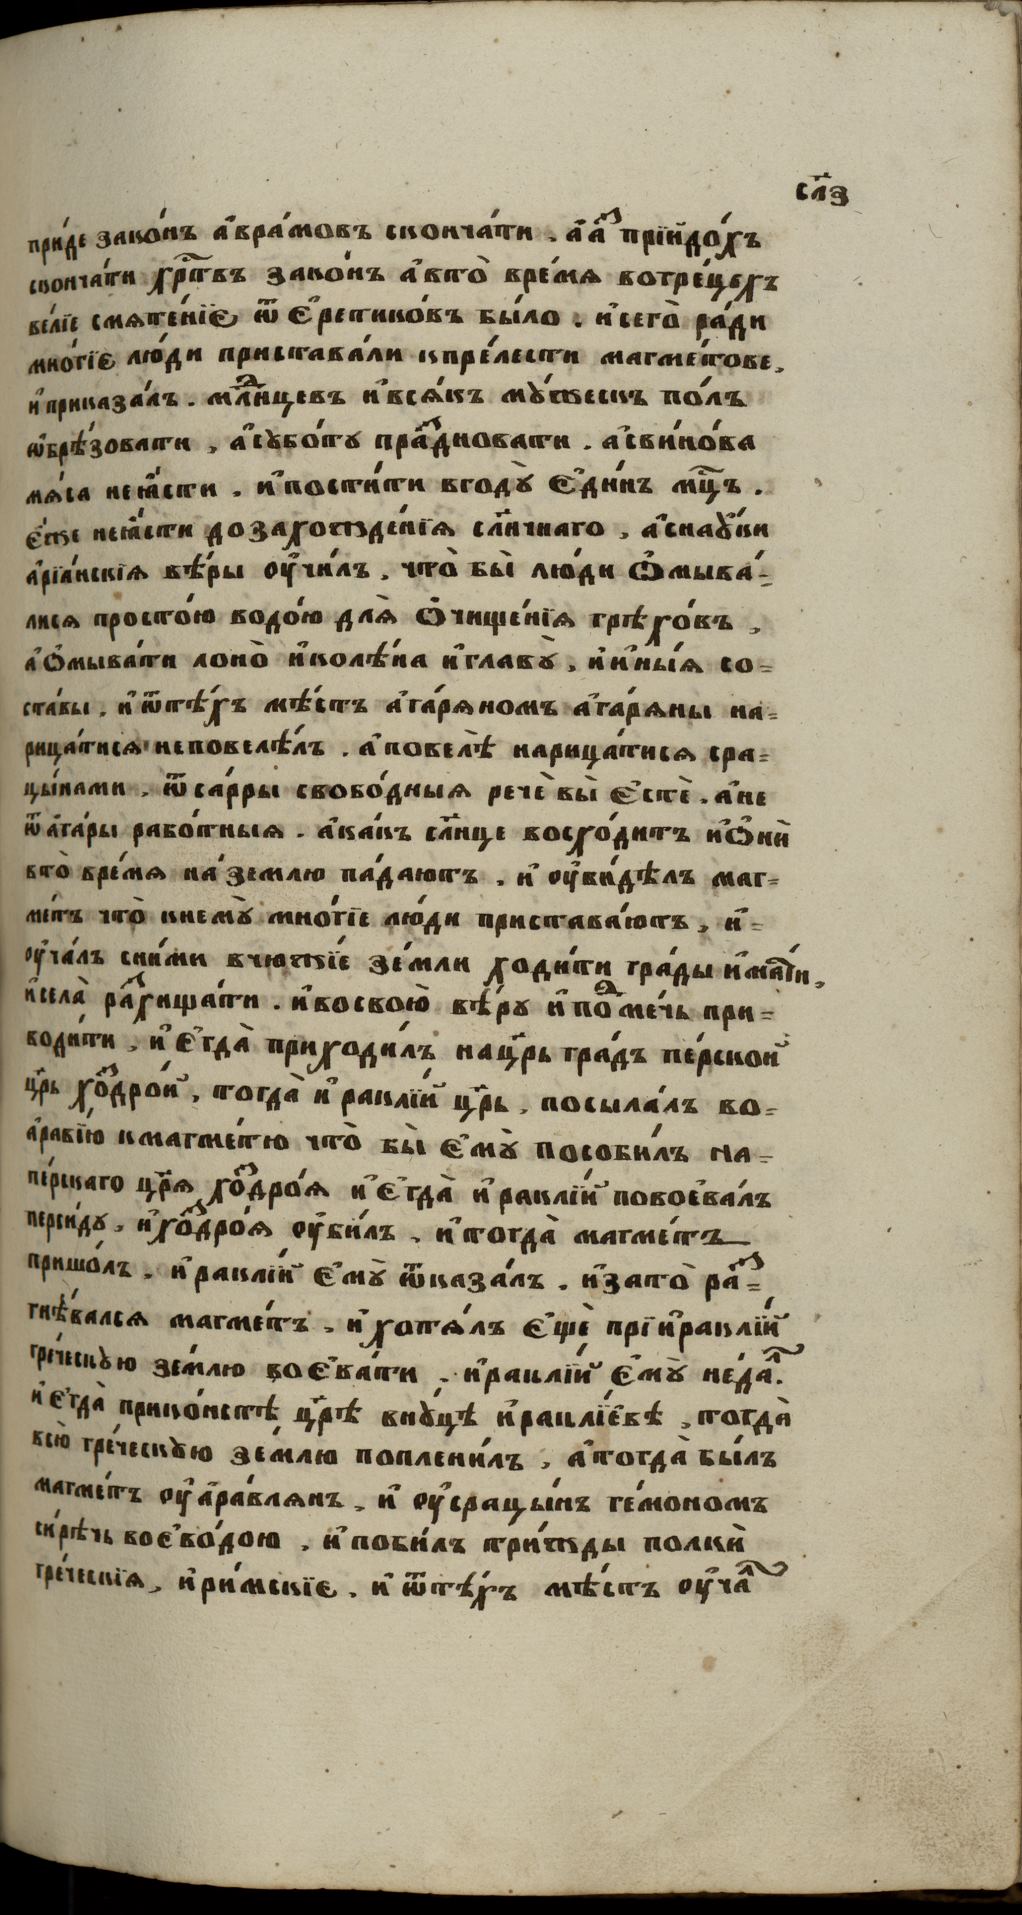 сл҃з
прїи́де зако́нъ а҆вра́мовъ сконча́ти . а҆а҆́з прїидо́хъ
сконча́ти хр҃товъ зако́нъ а҆вто̀ вре́мя вотре́цехъ
ве́лїе смяте́нїє ѿ є҆ретико́въ бы́ло . и҆сего̀ ра́ди
мно́гїє лю́ди приставáли кпре́лести магме́тове ,
и҆приказа́лъ . млⷣнцевъ и҆вся́къ мꙋ́жескъ по́лъ
ѡ҆брѣ́зовати , а҆сꙋбо́тꙋ пра́ⷥдновати . а҆свино́ва
мя́са неꙗ҆́сти . и҆пости́ти вгодꙋ̀ є҆ди́нъ мцⷭ҇ъ .
є҆́же неꙗ҆́сти дозахожде́нїя сл҃нчнаго , а҆снаꙋ҆́ки
а҆рїа́нскїя вѣ́ры оу҆чи́лъ , что̀ бы̀ лю́ди ѻ҆мыва́-
лися просто́ю водо́ю для̀ ѻ҆чище́нїя грѣхо́въ ,
а҆ѻ҆мыва́ти лоно̀ и҆колѣ́на и҆главꙋ̀ , и҆и҆ны́я со-
ста́вы , и҆ѿтѣ́хъ мѣ́стъ а҆га́ряномъ а҆га́ряны на-
рица́тися неповелѣ́лъ . а҆повелѣ̀ нарица́тися сра-
цы́нами , ѿса́рры свобо́дныя речѐ вы̀ є҆стѐ . а҆не
ѿа҆га́ры рабо́тныя . а҆ка́къ сл҃нце восхо́дитъ и҆ѻ҆нѝ
вто̀ вре́мя на́землю па́даютъ , и҆ оу҆ви́дѣлъ маг-
ме́тъ что̀ кнемꙋ̀ мно́гїе лю́ди пристава́ютъ , и҆-
оу҆ча́лъ сни́ми вчюжі́е зе́мли ходи́ти гра́ды и҆ма́ти ,
и҆села̀ ра́ⷥхищати . и҆восвою̀ вѣ́рꙋ и҆поⷣ ме́чь при-
води́ти , и҆ є҆гда̀ приходи́лъ нацр҃ь гра́дъ пе́рской
цр҃ь хоⷥдро́й , тогда̀ и҆ракли́й цр҃ь , посыла́лъ во-
а҆ра́вїю кмагме́тю что̀ бы̀ є҆мꙋ̀ пособи́лъ на-
пе́рскаго цр҃я хоⷥдро́я и҆є҆гда̀ и҆ракли́й повоева́лъ
перси́дꙋ , и҆хоⷥдро́я оу҆би́лъ , и҆тогда̀ магме́тъ
пришо́лъ . и҆ракли́й є҆мꙋ̀ ѿказа́лъ . и҆зато̀ ра́ⷥ-
гнѣ́вался магме́тъ , и҆ хотя́лъ є҆щѐ прѝ и҆ракли́й
гре́ческꙋю зе́млю воєва́ти , и҆ракли́й є҆мꙋ̀ неда́ⷧ .
и҆є҆гда̀ прико́нстѣ цр҃ѣ внꙋ́цѣ и҆раклі́евѣ , тогда̀
всю̀ гре́ческꙋю зе́млю поплени́лъ , а҆тогда̀ бы́лъ
магме́тъ оу҆а҆ра́влянъ , и҆ оу҆срацы́нъ ге́моно́мъ
си́рѣчь воєво́дою , и҆поби́лъ три́жды полкѝ
гре́ческїя , и҆ри́мскїє , и҆ ѿтѣ́хъ мѣ́стъ оу҆ча́ⷧ